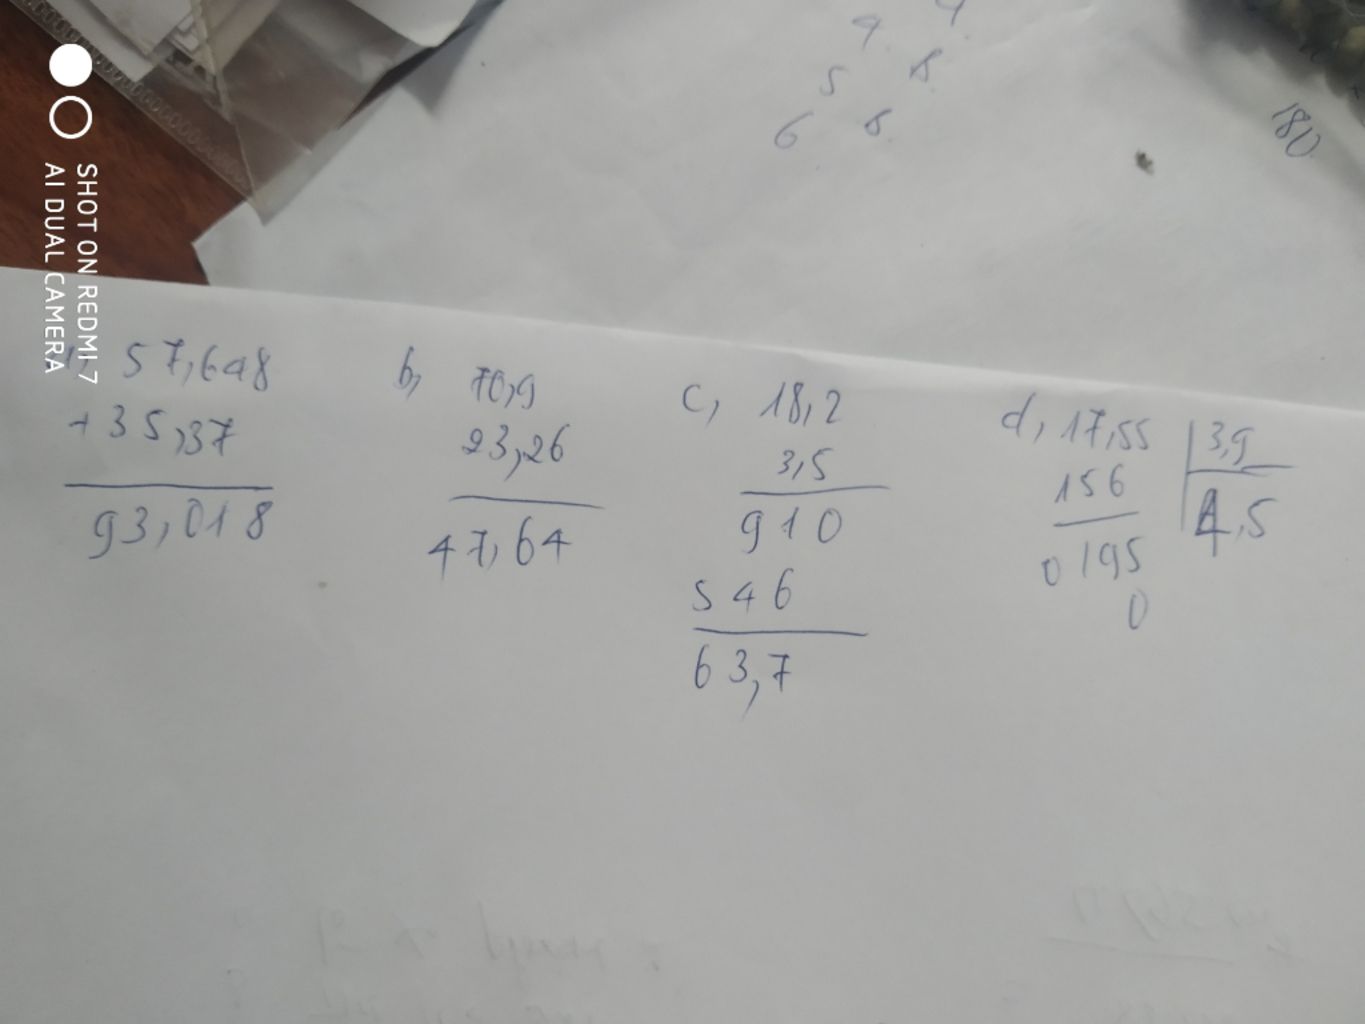 4 4
5 8
6 8
180
SHOT ON REDMI 7
AI DUAL CAMERA
57,648
+35,37
93,018
b, 70,9
23,26
47,64
c, 18,2
3,5
910
546
63,7
d, 17,55 3,9
156 4,5
0195
0